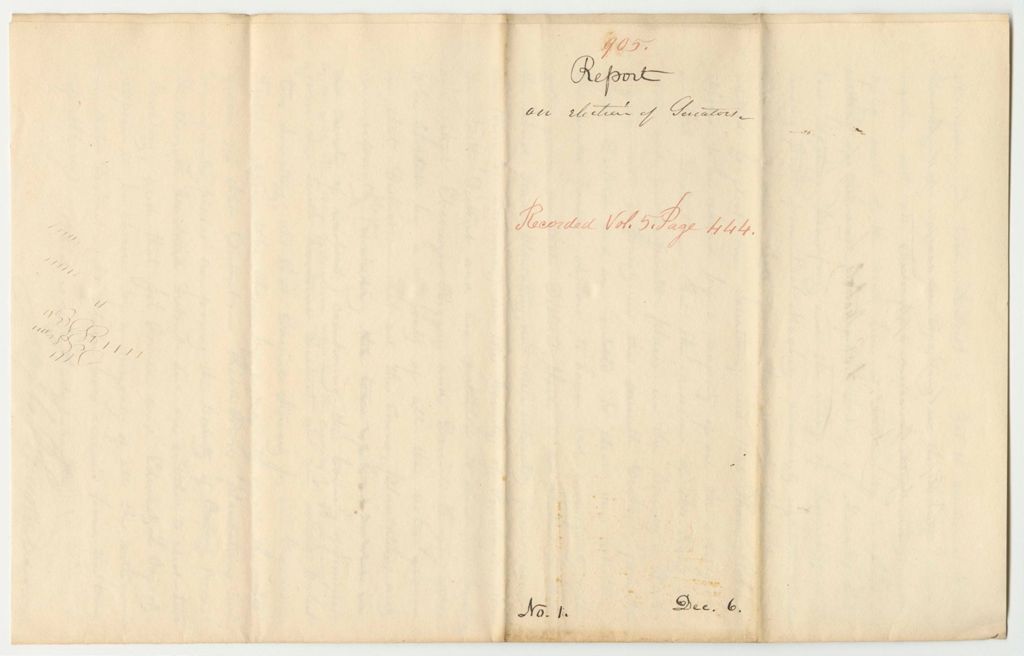 905.
Report
on election of Senators
Recorded Vol. 5. Page 444.
No. 1. Dec. 6.